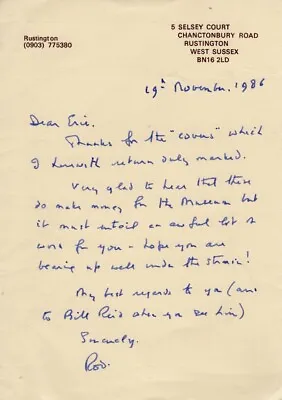 Rustington
(0903) 775380
5 SELSEY COURT
CHANCTONBURY ROAD
RUSTINGTON
WEST SUSSEX
BN16 2LD
19th November. 1986
Dear Eric.
Thanks for the "covers" which
I herewith return duly marked.
Very glad to hear that these
do make money for the Museum but
it must entail an awful lot of
work for you - hope you are
bearing up well under the strain!
My best regards to you (and
to Bill Reid when you see him)
Sincerely.
Rod.